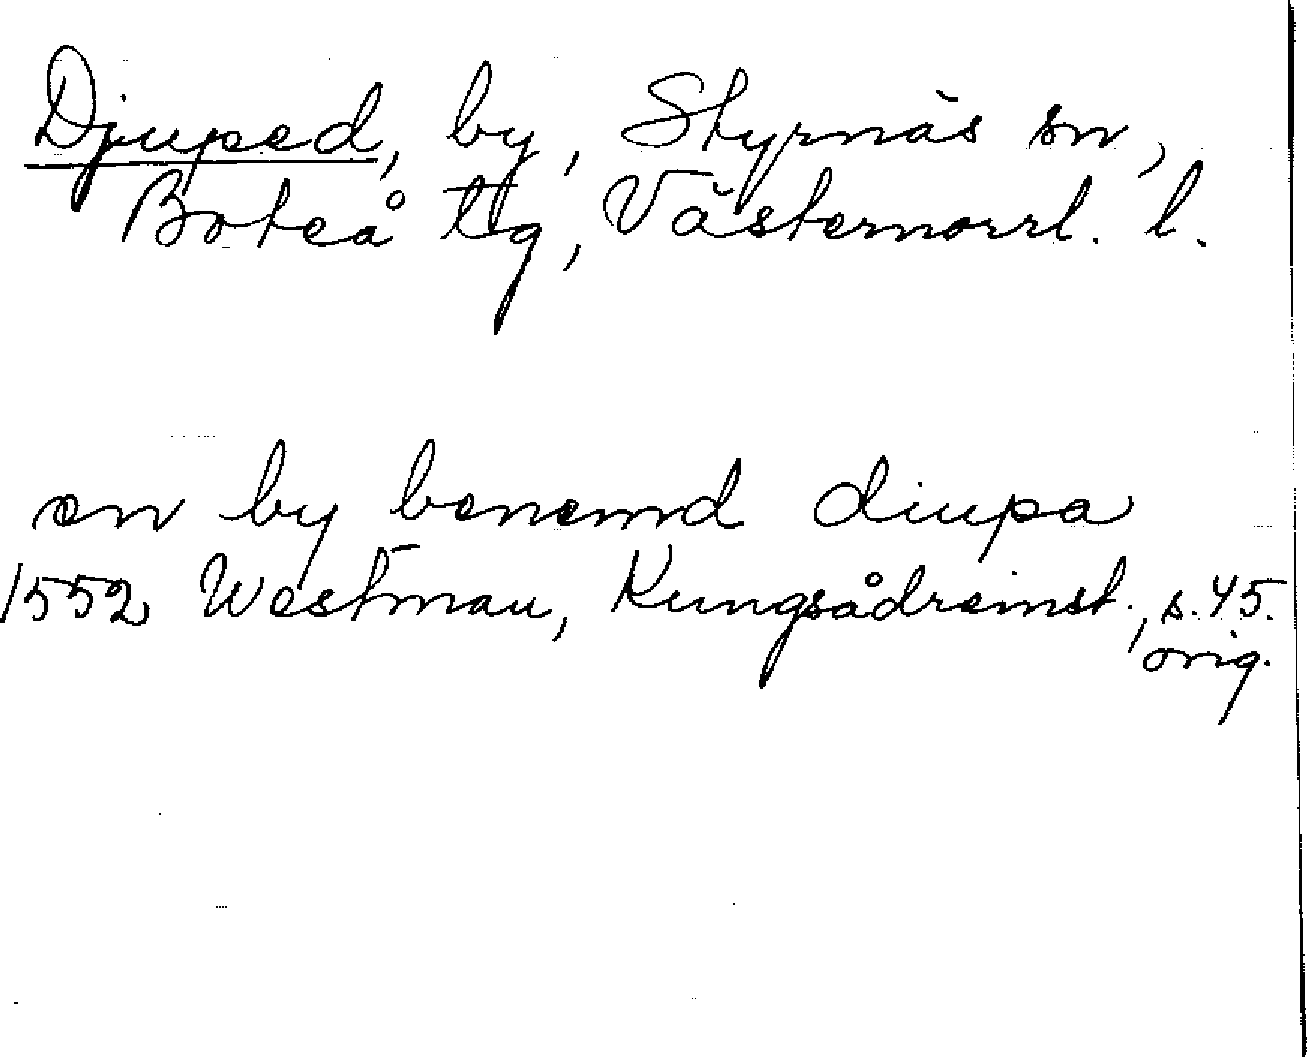 Djuped, by, Styrnäs sn,
Boteå tg, Västernorrl. l.
en by benemd diupa
1552 Westman, Kungsådreinst., s. 45.
orig.